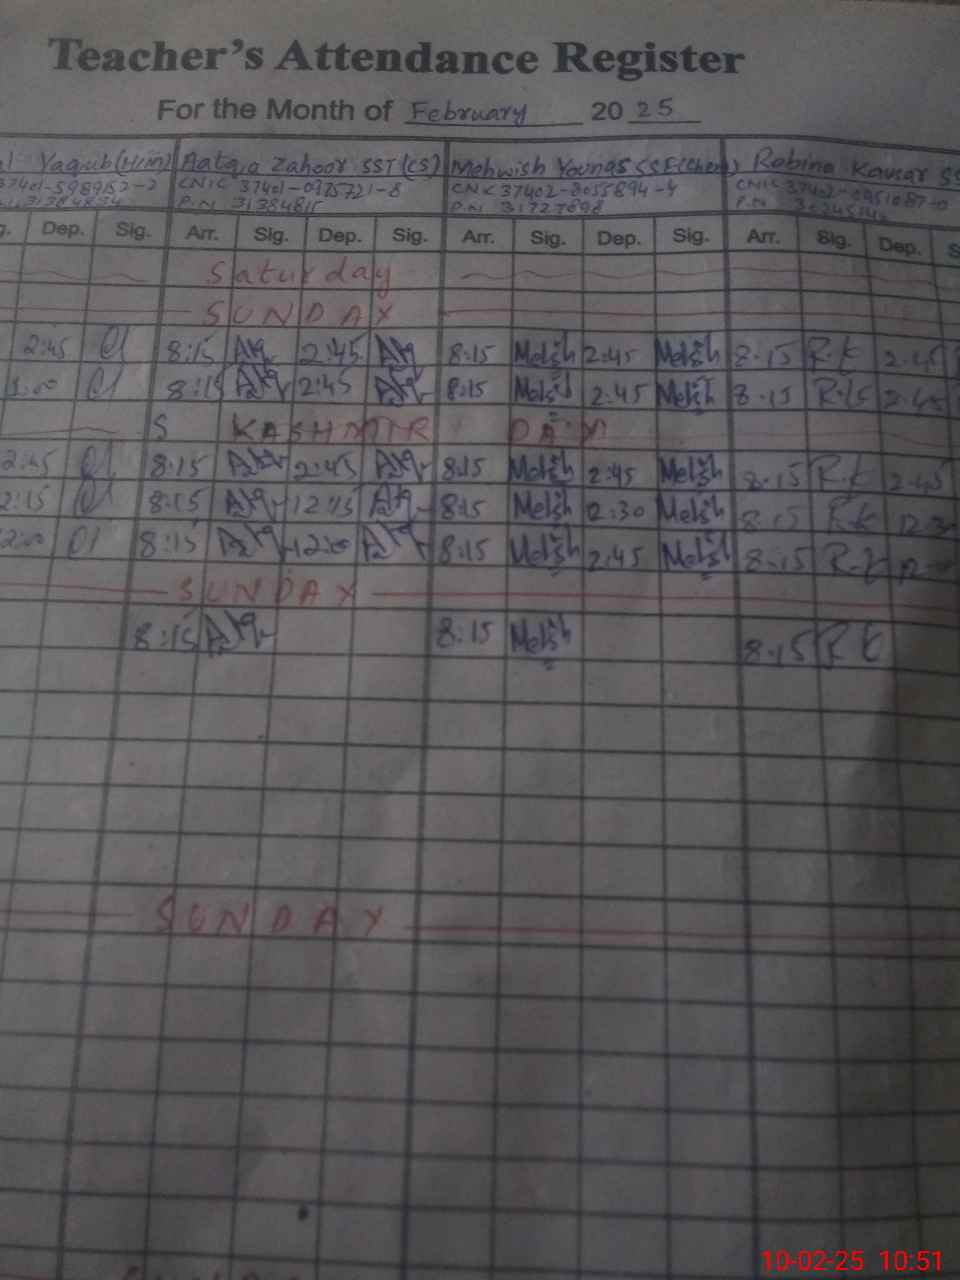 Teacher's Attendance Register
For the Month of February 2025
Yaqub (H/M) Aatqia Zahoor SST (CS) Mehwish Younas SSE (Chem) Robina Kausar SS
37401-5989152-2 CNIC 37401-0925721-8 CNIC 37402-8055894-4 CNIC 37402-0951087-0
31384834 P.N 31384815 P.N 31727898 P.N
g. Dep. Sig. Arr. Sig. Dep. Sig. Arr. Sig. Dep. Sig. Arr. Sig. Dep. S
Saturday
SUNDAY
2:45 8:15 2:45 8:15 Mehsh 2:45 Mehsh 8:15 R.K 2:45
1:00 8:15 2:45 8:15 Mehsh 2:45 Mehsh 8:15 R.K 2:45
KASHMIR DAY
2:45 8:15 2:45 8:15 Mehsh 2:45 Mehsh 8:15 R.K 2:45
2:15 8:15 8:15 Mehsh 2:30 Mehsh 8:15 R.K 12:30
2:00 8:15 12:00 8:15 Mehsh 2:45 Mehsh 8:15 R.K
SUNDAY
8:15 8:15 Mehsh 8:15 R.K
SUNDAY
10-02-25 10:51